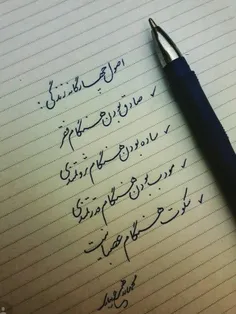 اصول چهارگانه زندگی:
✓ صادق بودن هنگام فقر
✓ ساده بودن هنگام ثروتمندی
✓ مودب بودن هنگام قدرتمندی
✓ سکوت هنگام عصبانیت